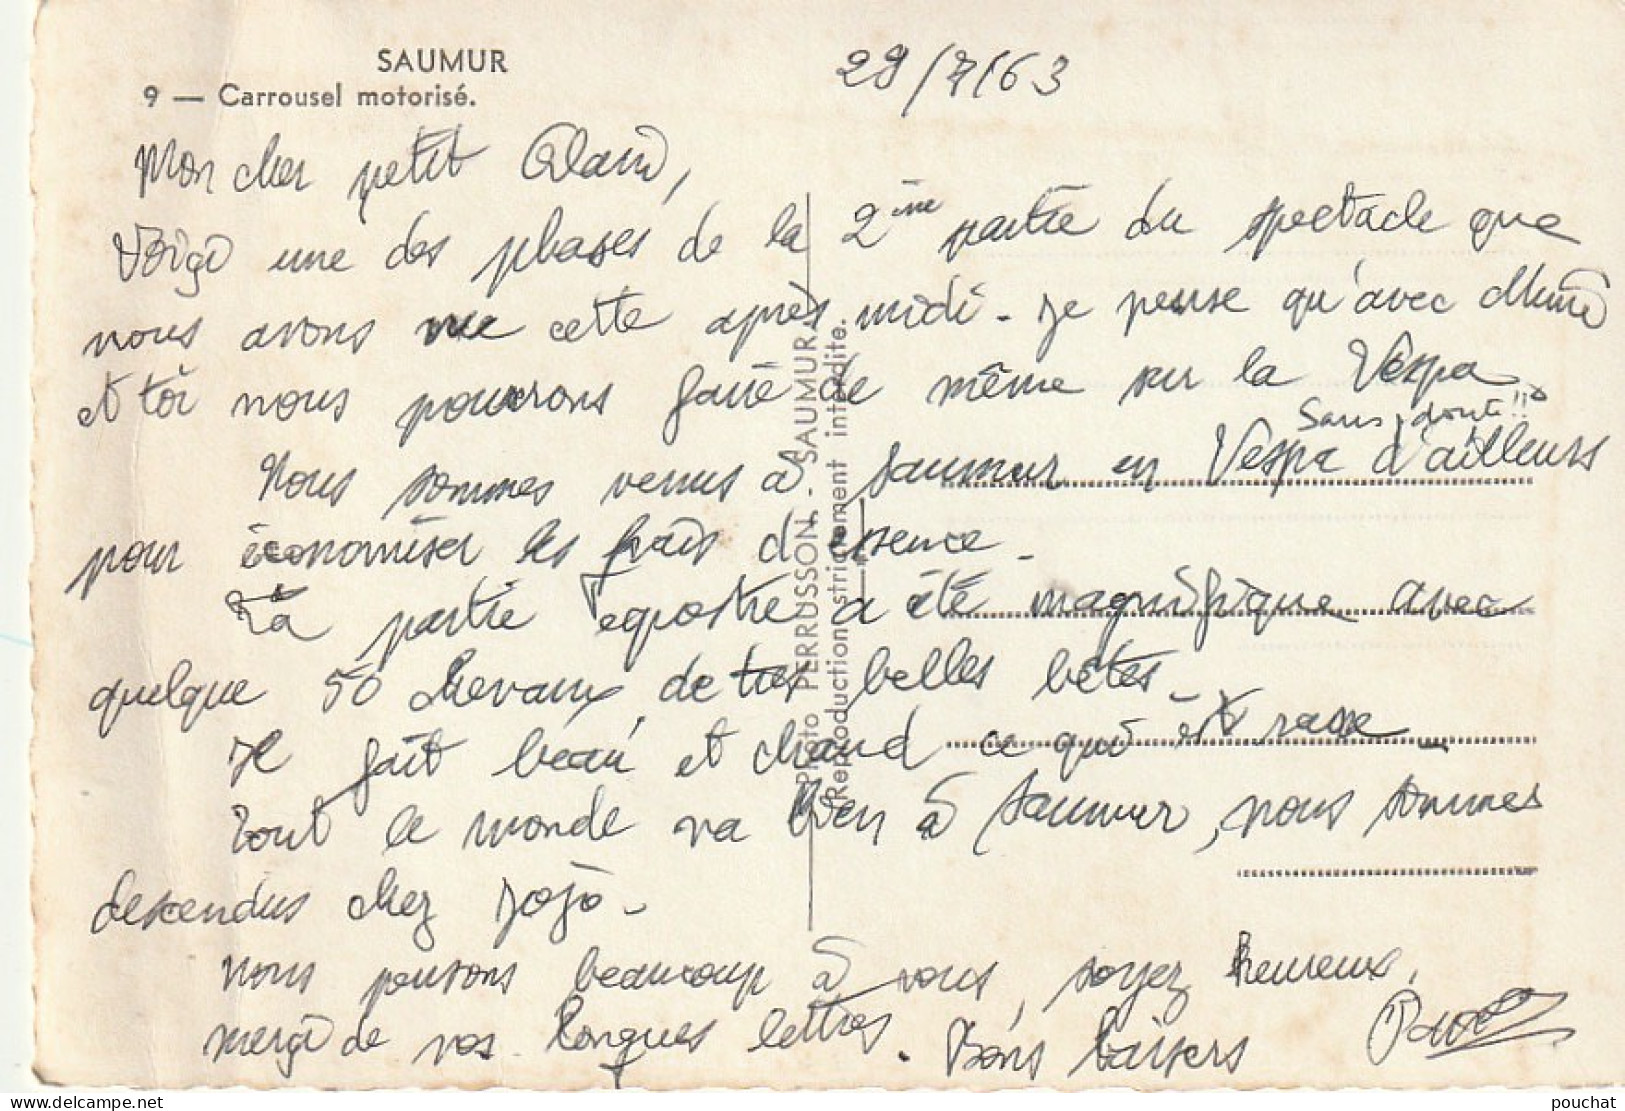 SAUMUR
9 — Carrousel motorisé.
29/7/63
Mon cher petit Alain,
Voiçi une des phases de la 2ème partie du spectacle que
nous avons vue cette après midi. Je pense qu'avec Mimi
et toi nous pourrons faire de même sur la Vespa
Sans, doute !!!
Nous sommes venus à Saumur en Vespa d'ailleurs
pour économiser les frais d'essence.
La partie équestre a été magnifique avec
quelque 50 chevaux de très belles bêtes.
Il fait beau et chaud ce qui est rare.
Tout le monde va bien à Saumur, nous sommes
descendus chez Jojo.
Nous pensons beaucoup à vous, soyez heureux.
Merçi de vos longues lettres. Bons baisers
Photo PERRUSSON - SAUMUR.
Reproduction strictement interdite.
pouchat